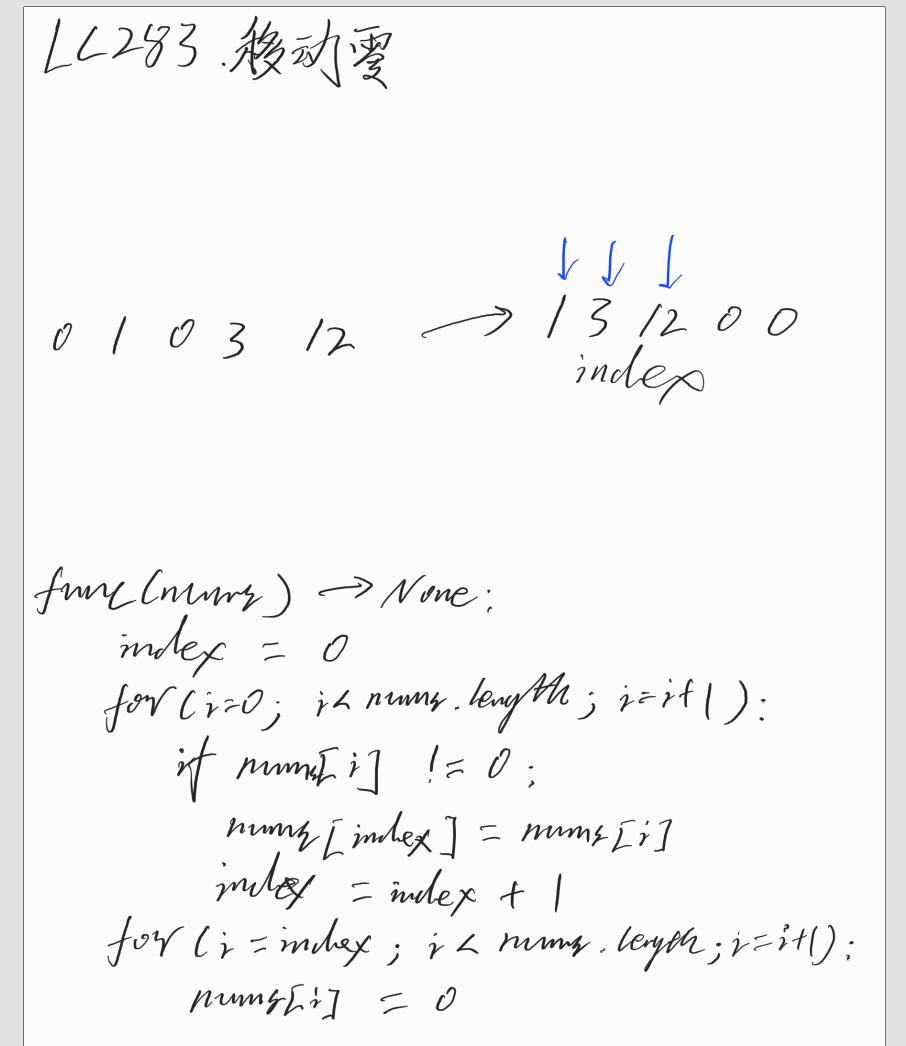 LC283.移动零
0 1 0 3 12 → 1 3 12 0 0
index
func(nums) → None:
index = 0
for(i=0; i< nums.length; i=i+1):
if nums[i] != 0:
nums[index] = nums[i]
index = index + 1
for(i=index; i< nums.length; i=i+1):
nums[i] = 0